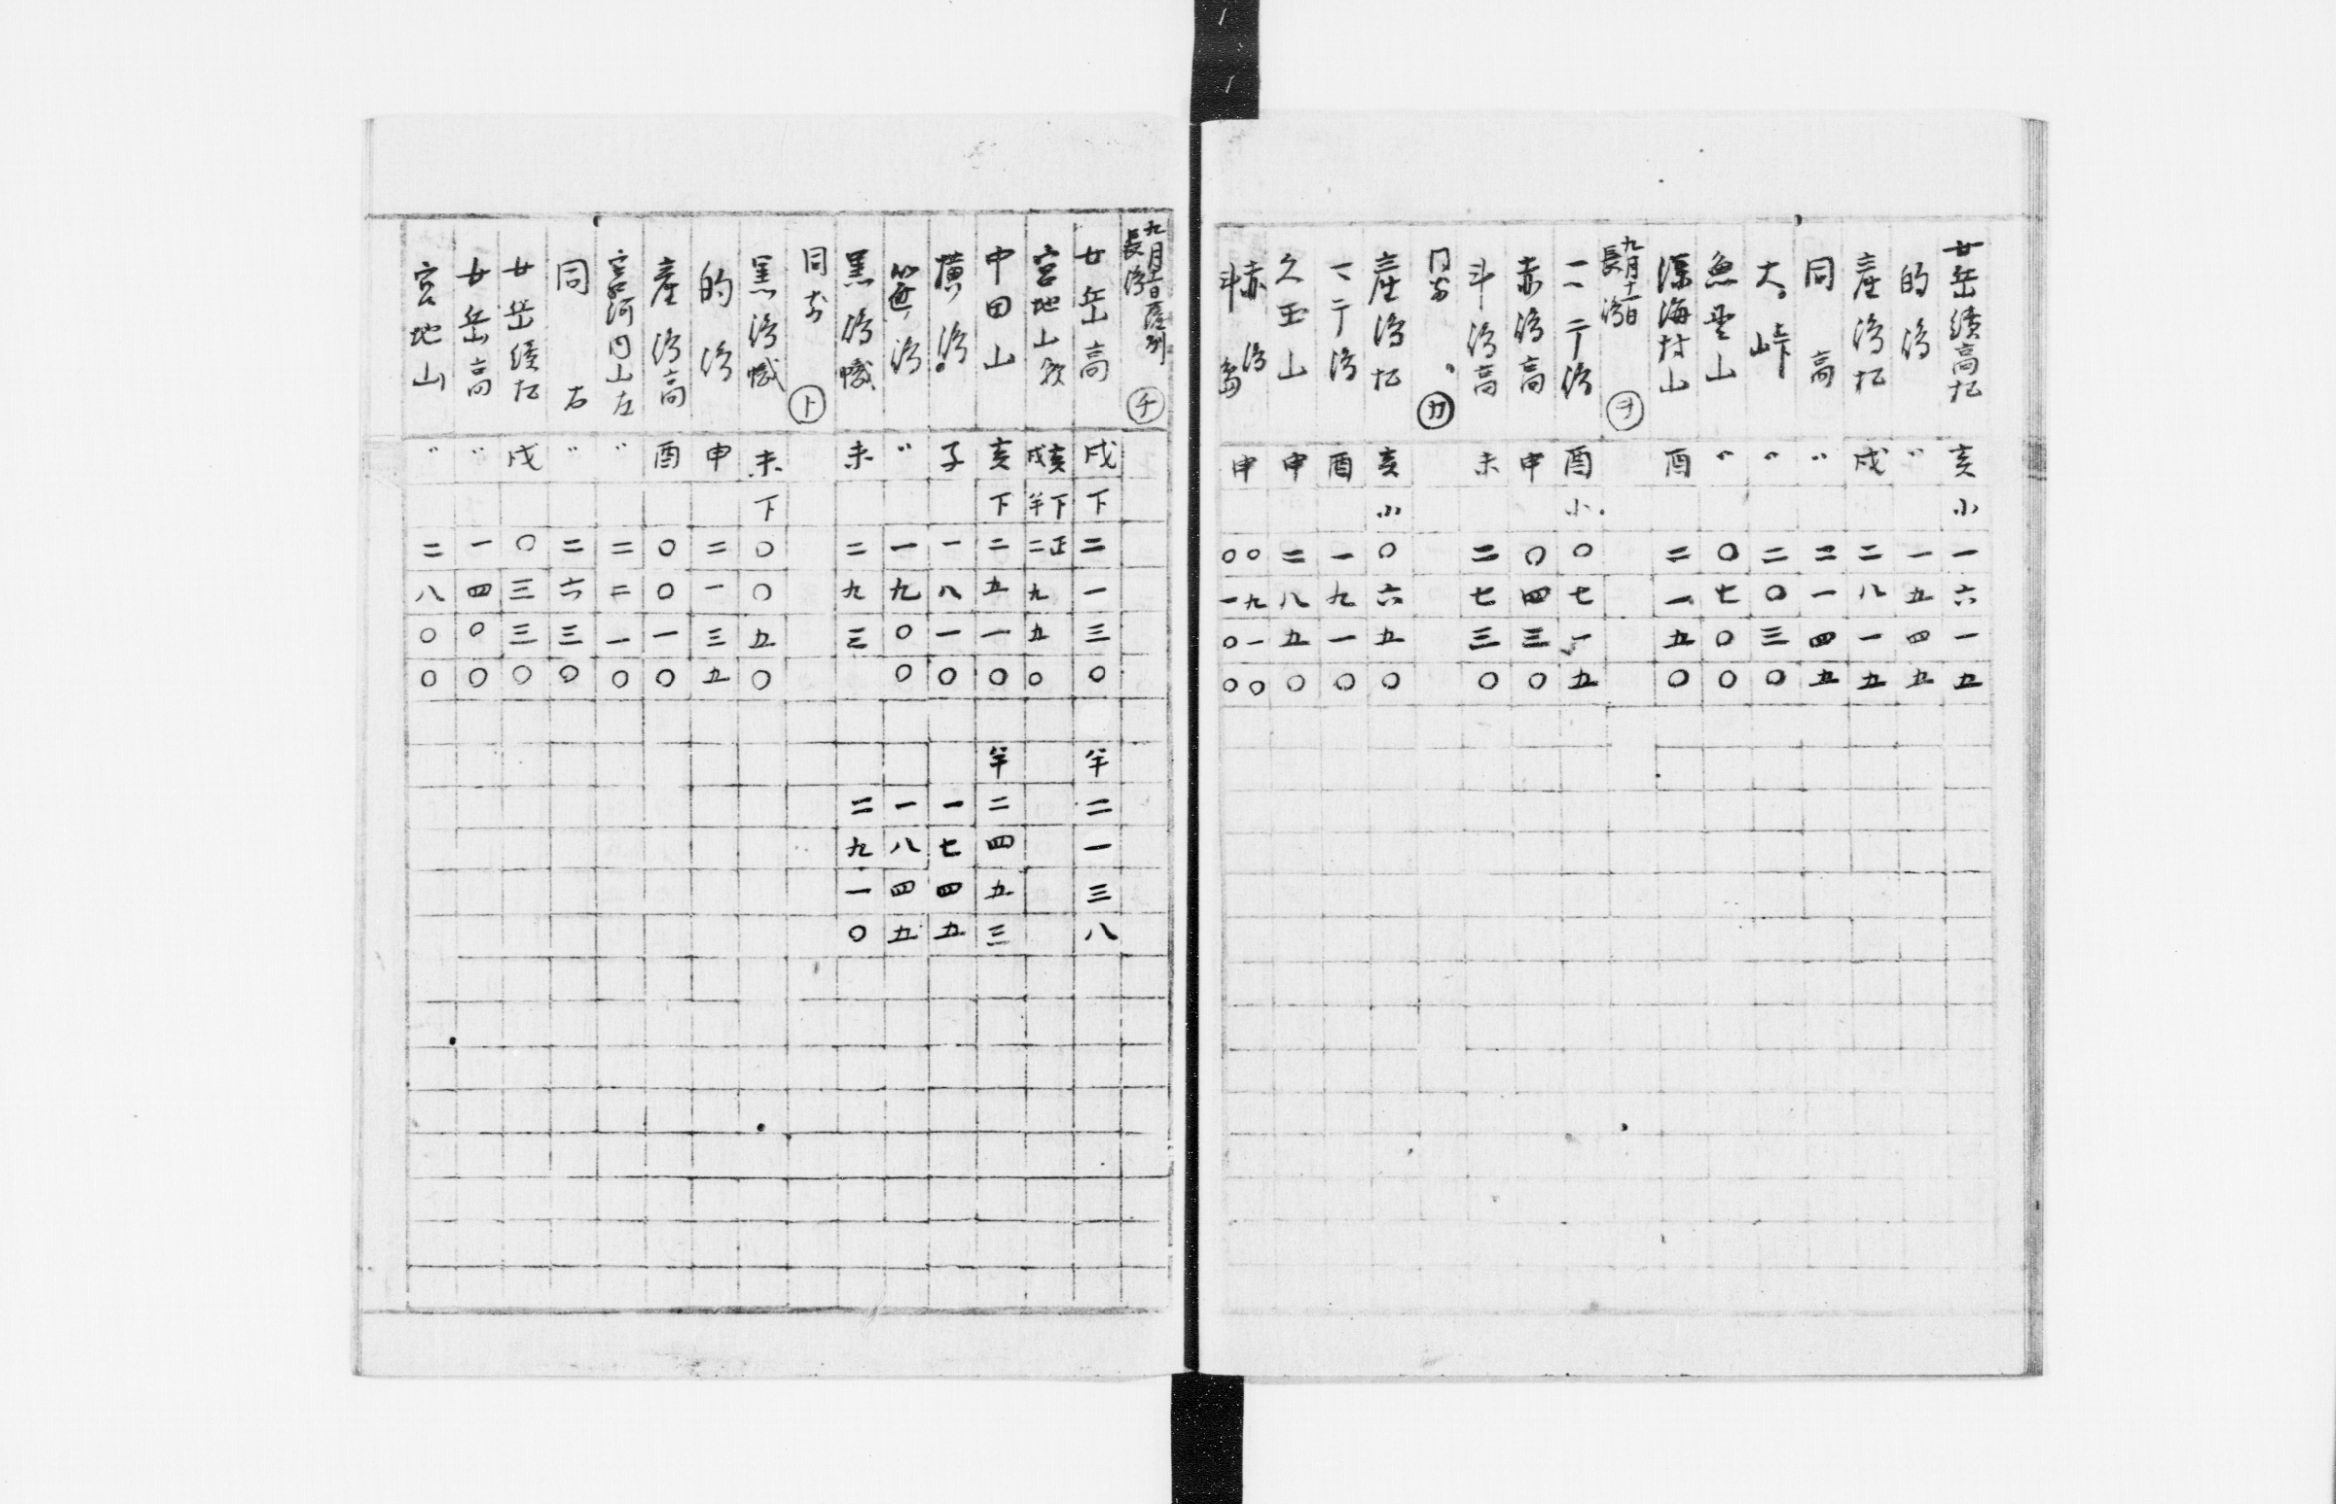 女岳續高松 亥 小 一 六 一 五
的湾 〃 一 五 四 五
産湾松 戌 二 八 一 五
同高 〃 二 一 四 五
大峠 〃 二 〇 三 〇
魚見山 〃 〇 七 〇 〇
深海村山 酉 二 一 五 〇
九月十一日
長湾 ヲ
一二丁湾 酉 小 〇 七 一 五
赤湾高 申 〇 四 三 〇
斗湾高 未 二 七 三 〇
カ
産湾松 亥 小 〇 六 五 〇
一二丁湾 酉 一 九 一 〇
久玉山 申 二 八 五 〇
赤湾 申 〇 九 一 〇
斗 〇 一 〇 〇
九月
長湾 チ
女岳高 戌 下 二 一 三 〇 半 二 一 三 八
宮地山 亥 下 正
戌 半 二 九 五 〇
中田山 亥 下 二 五 一 〇 半 二 四 五 三
横湾 子 一 八 一 〇 一 七 四 五
湾 〃 一 九 〇 〇 一 八 四 五
黒湾 未 二 九 三 二 九 一 〇
同所 ト
黒湾 未 下 〇 〇 五 〇
的湾 申 二 一 三 五
産湾高 酉 〇 〇 一 〇
宮河内山左 〃 二 二 一 〇
同右 〃 二 六 三 〇
女岳續松 戌 〇 三 三 〇
女岳高 〃 一 四 〇 〇
宮地山 〃 二 八 〇 〇